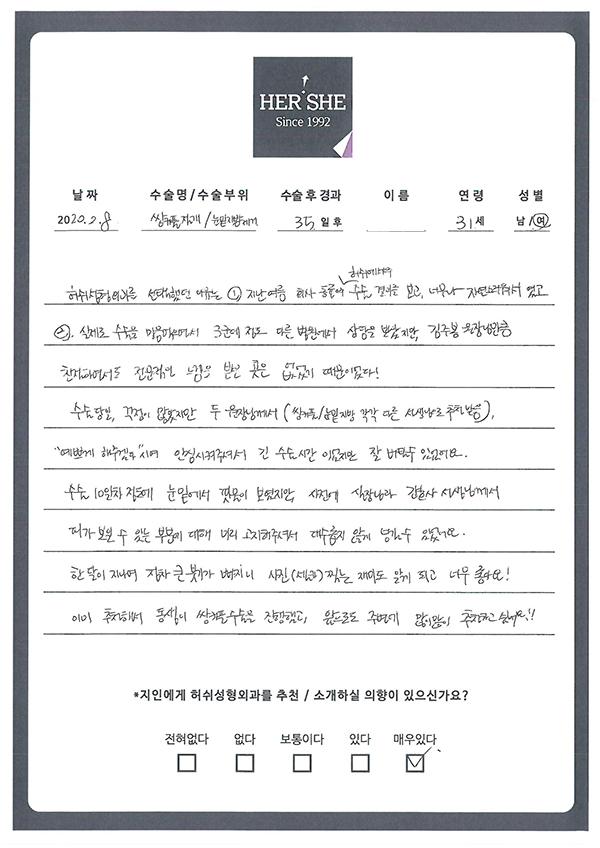 HER SHE
Since 1992
날짜 수술명/수술부위 수술후경과 이름 연령 성별
2020.2.8 쌍커풀재개/눈밑지방제거 35일후 31세 남/여
허쉬에서의
허쉬성형외과를 선택했던 이유는 ① 지난여름 회사 동료의 수술 결과를 보고, 너무나 자연스러워서 였고
②. 실제로 수술을 마음먹으면서 3군데 정도 다른 병원에서 상담을 받았지만, 김주봉 원장님만큼
친절하면서도 전문적인 느낌을 받은 곳은 없었기 때문이었다!
수술당일, 걱정이 많았지만 두 원장님께서 (쌍커풀/눈밑지방 각각 다른 선생님으로 추천받음),
"예쁘게 해주겠다"시며 안심시켜주셔서 긴 수술시간 이었지만 잘 버틸수 있었어요.
수술 10일차 정도에 눈밑에서 핏물이 보였지만, 사전에 실장님과 간호사 선생님께서
피가 보일 수 있는 부분에 대해 미리 고지해주셔서 대수롭지 않게 넘길수 있었어요.
한달이 지나며 점차 큰붓기가 빠지니 사진(셀카) 찍는 재미도 알게 되고 너무 좋아요!
이미 추천해서 동생이 쌍커풀수술을 진행했고, 앞으로도 주변에 많이많이 추천하고 싶네요!!
*지인에게 허쉬성형외과를 추천 / 소개하실 의향이 있으신가요?
전혀없다 없다 보통이다 있다 매우있다